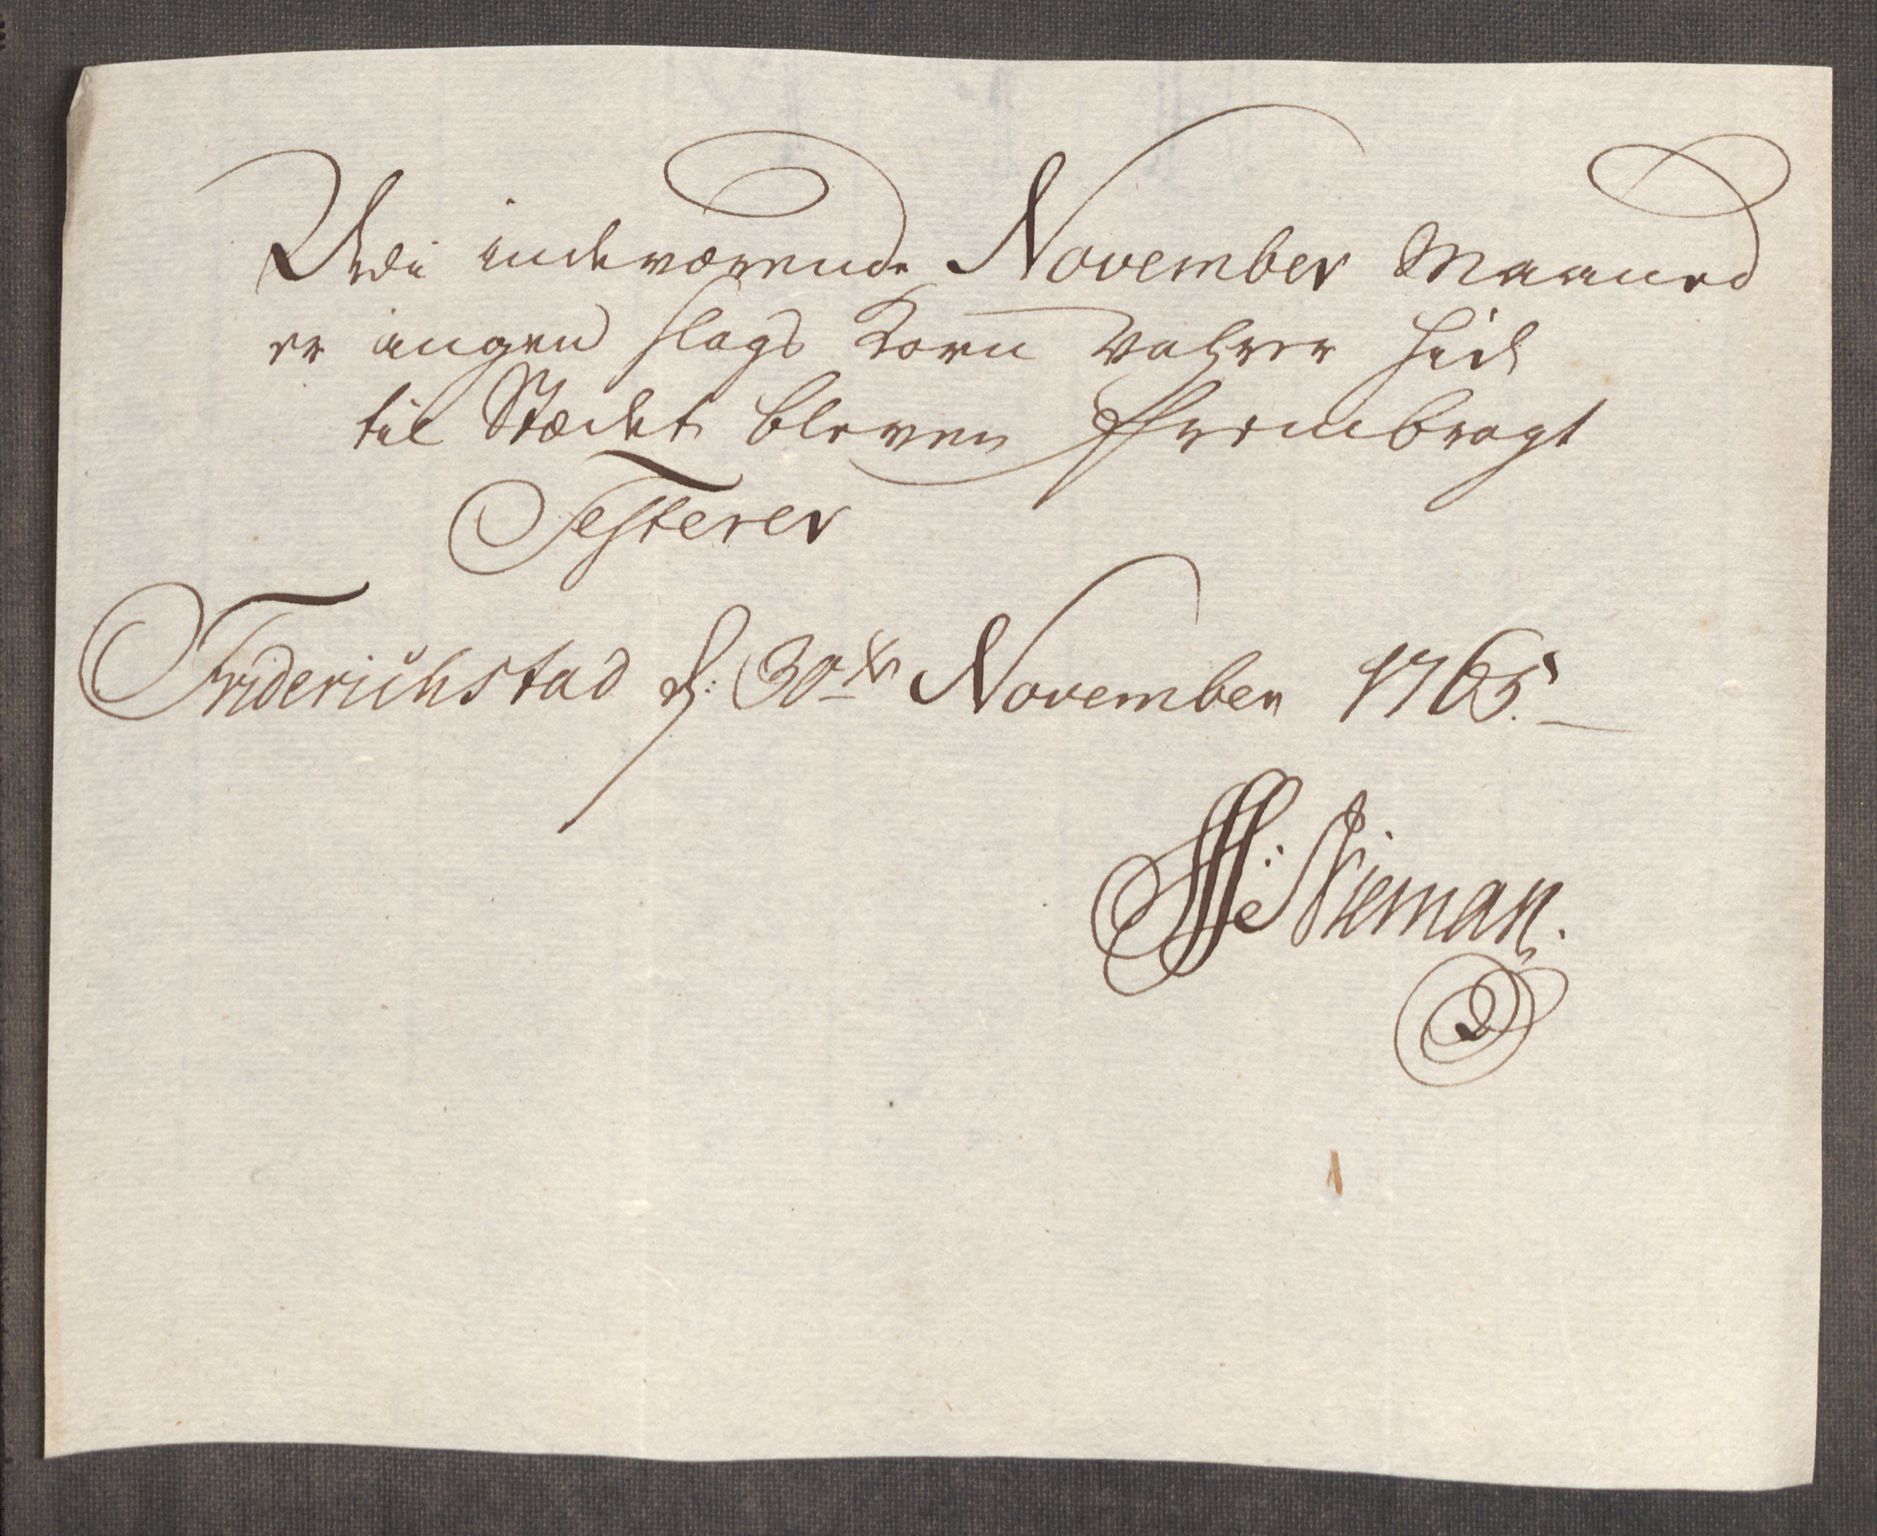 Udi indeværende November Maaned
er ingen slags Korn Vahrer hid
til Stædet bleven frembragt
Testerer
Friderichstad d: 30te November 1765.
Nieman.